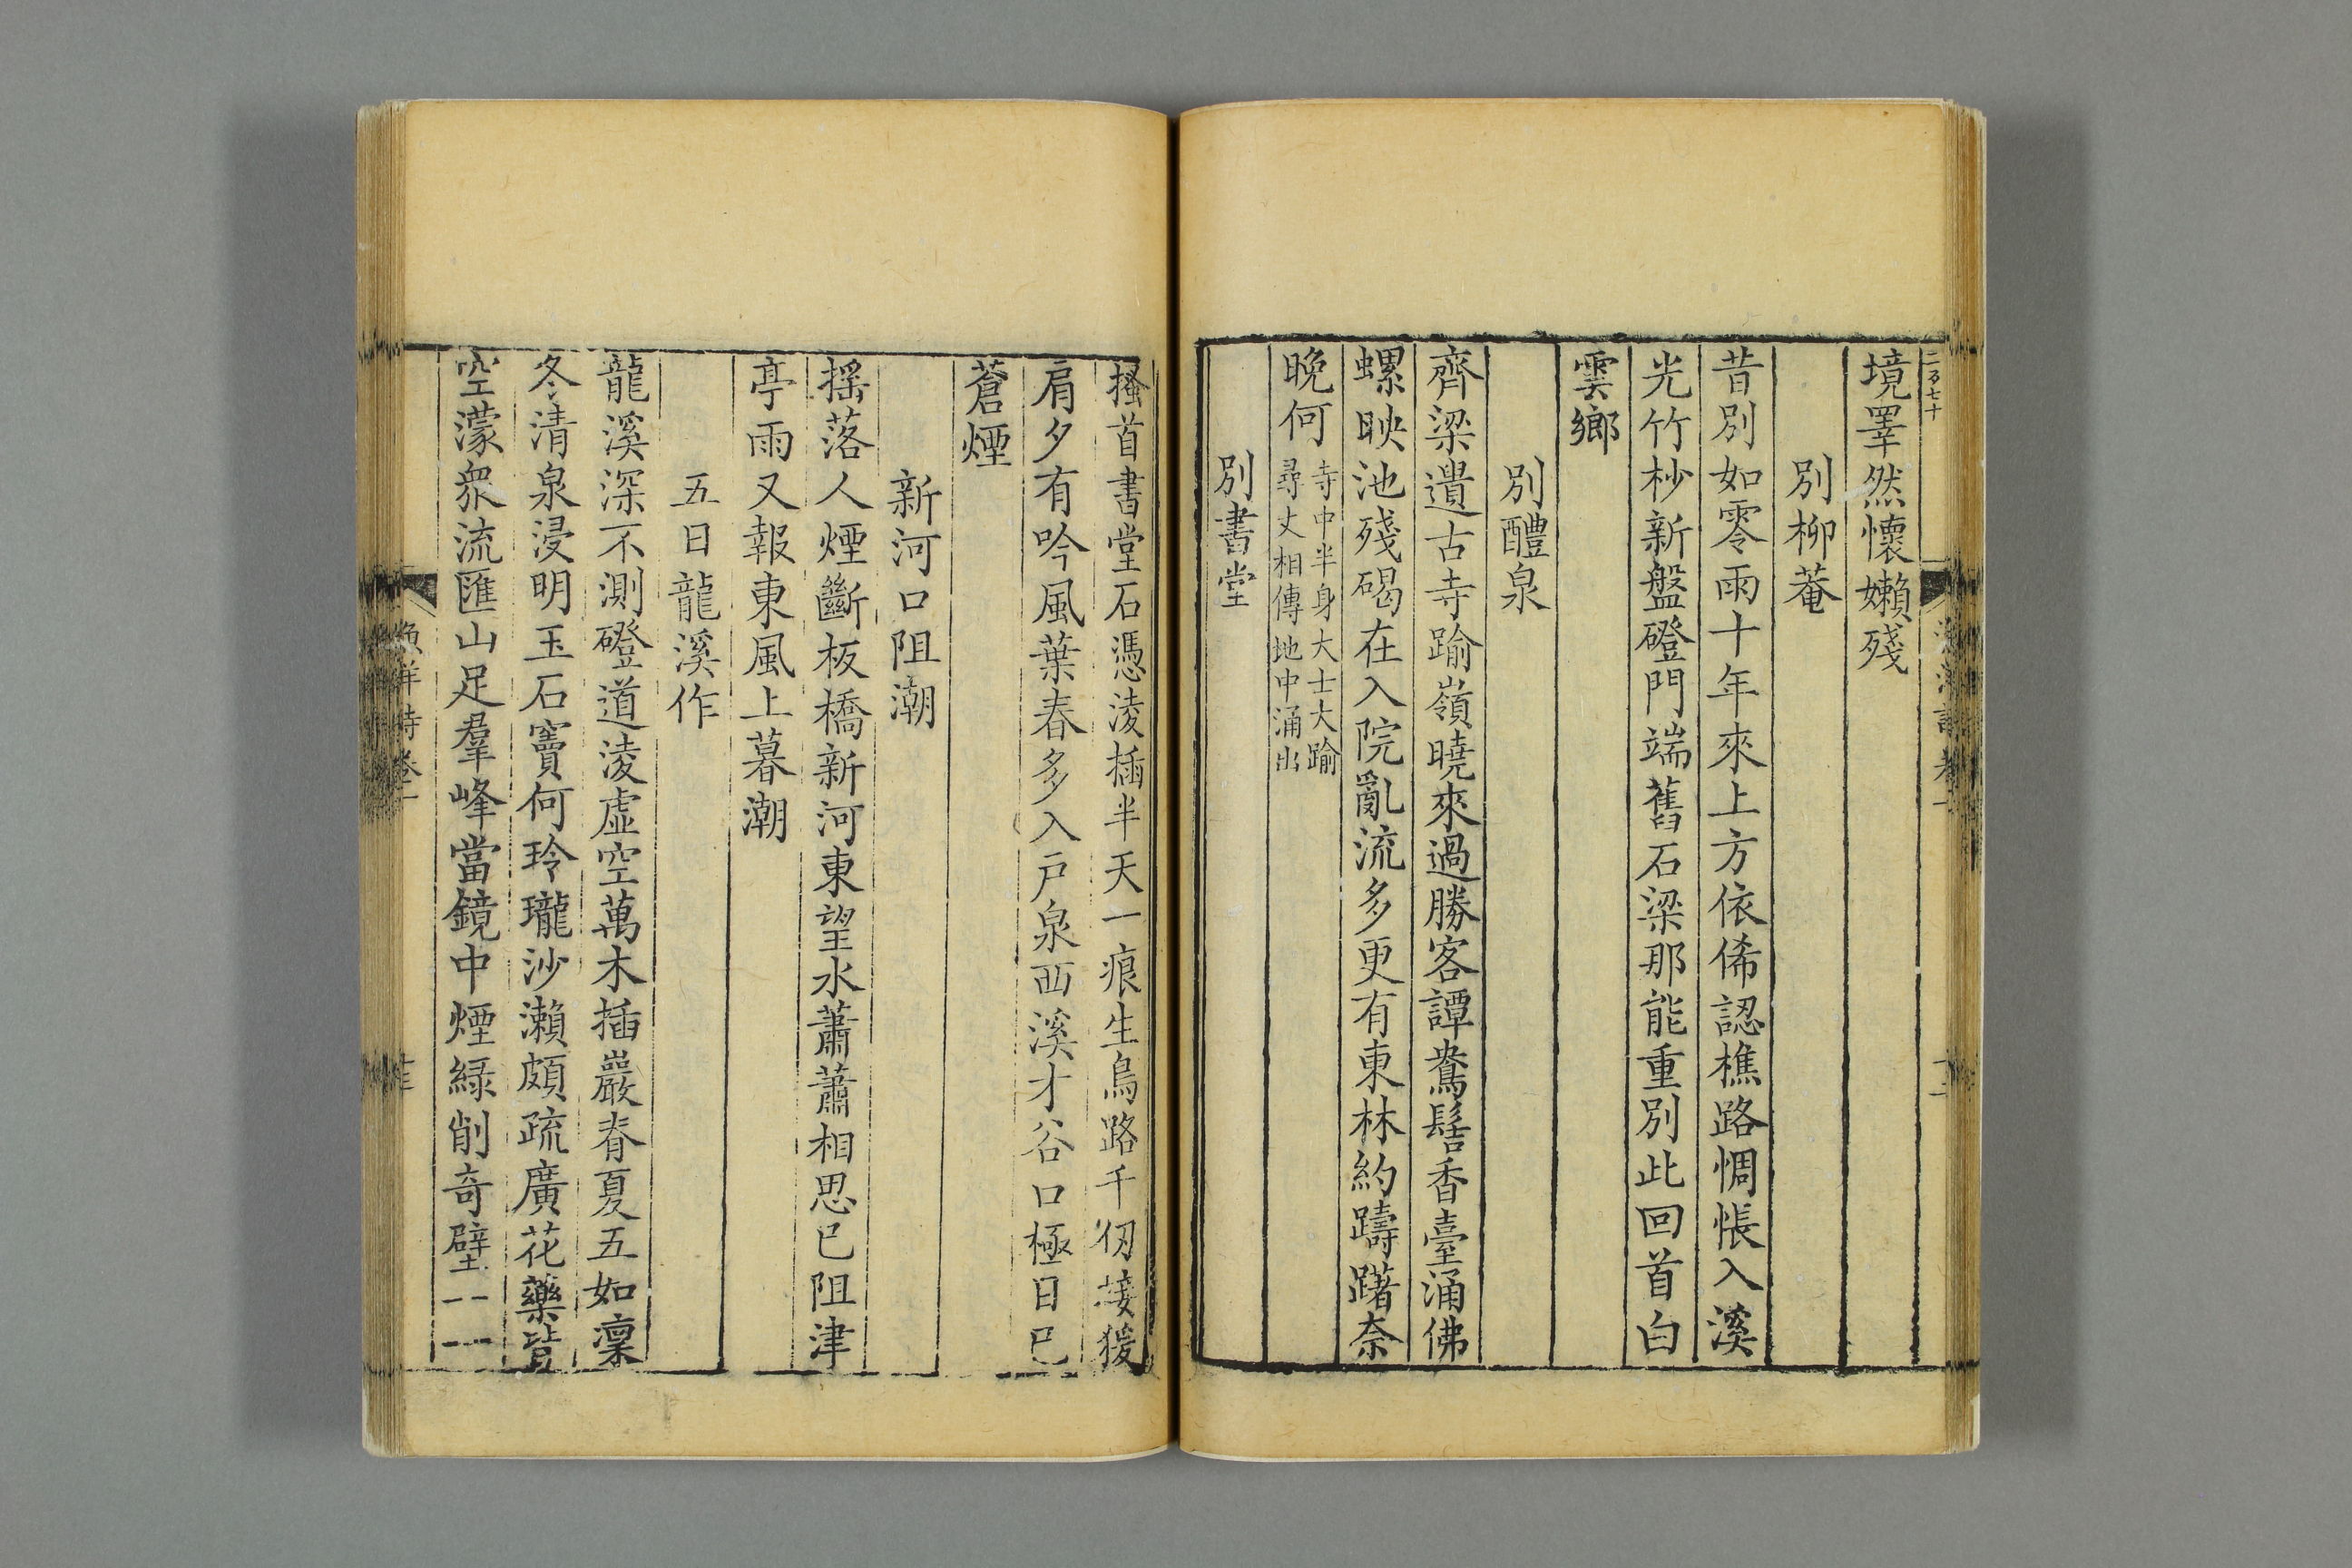 二百七十
境睪然懷嬾殘
別柳菴
昔別如零雨十年來上方依俙認樵路惆悵入溪
光竹杪新盤磴門端舊石梁那能重別此回首白
雲鄉
別醴泉
齊梁遺古寺踰嶺曉來過勝客譚鴦髻香臺涌佛
螺映池殘碣在入院亂流多更有東林約躊躇奈
晚何
寺中半身大士大踰
尋丈相傳地中涌出
別書堂
搔首書堂石憑淩插半天一痕生鳥路千仞接猨
肩夕有吟風葉春多入戶泉西溪才谷口極日已
蒼煙
新河口阻潮
搖落人煙斷板橋新河東望水蕭蕭相思已阻津
亭雨又報東風上暮潮
五日龍溪作
龍溪深不測磴道淩虛空萬木插巖脊夏五如凜
冬清泉浸明玉石竇何玲瓏沙瀨頗疏廣花藥皆
空濛衆流匯山足羣峰當鏡中煙綠削奇壁一一
漁洋詩卷一